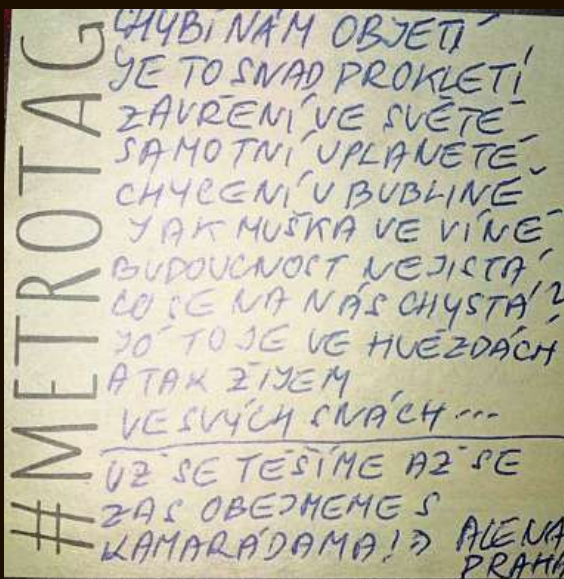 #METROTAG
CHYBÍ NÁM OBJETÍ
JE TO SNAD PROKLETÍ
ZAVŘENÍ VE SVĚTĚ
SAMOTNÍ V PLANETĚ
CHYCENÍ V BUBLINĚ
JAK MUŠKA VE VÍNĚ
BUDOUCNOST NEJISTÁ
CO SE NA NÁS CHYSTÁ?
JÓ TO JE VE HVĚZDÁCH
A TAK ŽIJEM
VE SVÝCH SNÁCH...
UŽ SE TĚŠÍME AŽ SE
ZAS OBEJMEME S
KAMARÁDAMA! :) ALENA
PRAHA